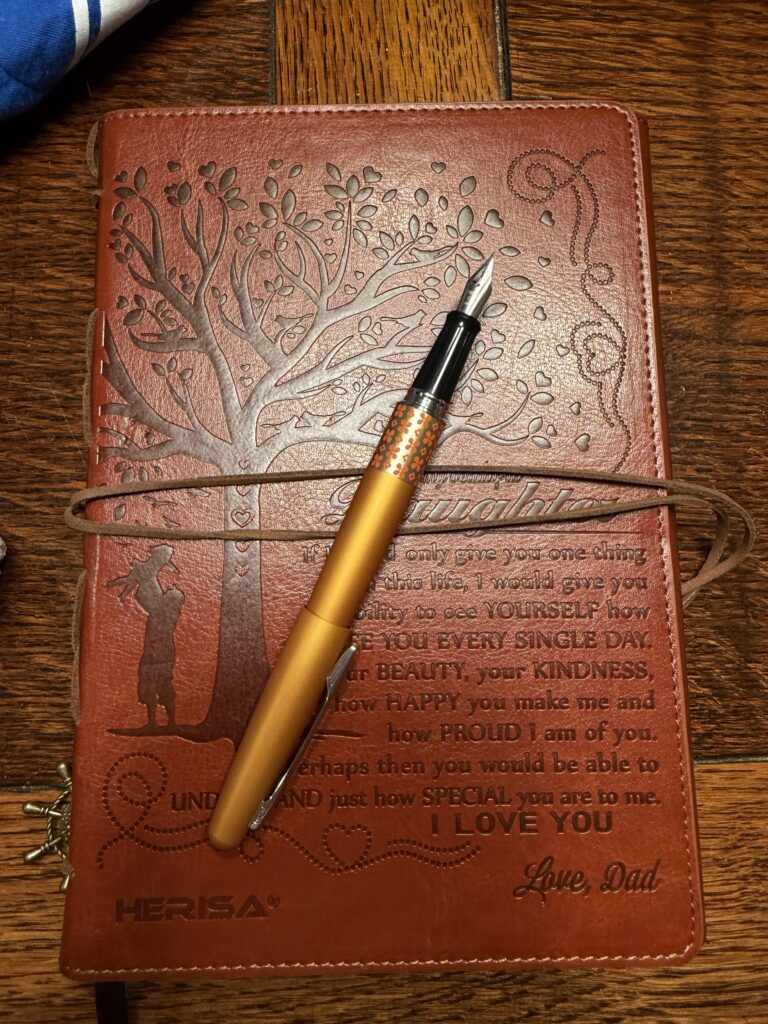 Daughter
If only give you one thing
this life, I would give you
ability to see YOURSELF how
YOU EVERY SINGLE DAY.
BEAUTY, your KINDNESS,
how HAPPY you make me and
how PROUD I am of you.
Perhaps then you would be able to
just how SPECIAL you are to me.
I LOVE YOU
Love, Dad
HERISA®